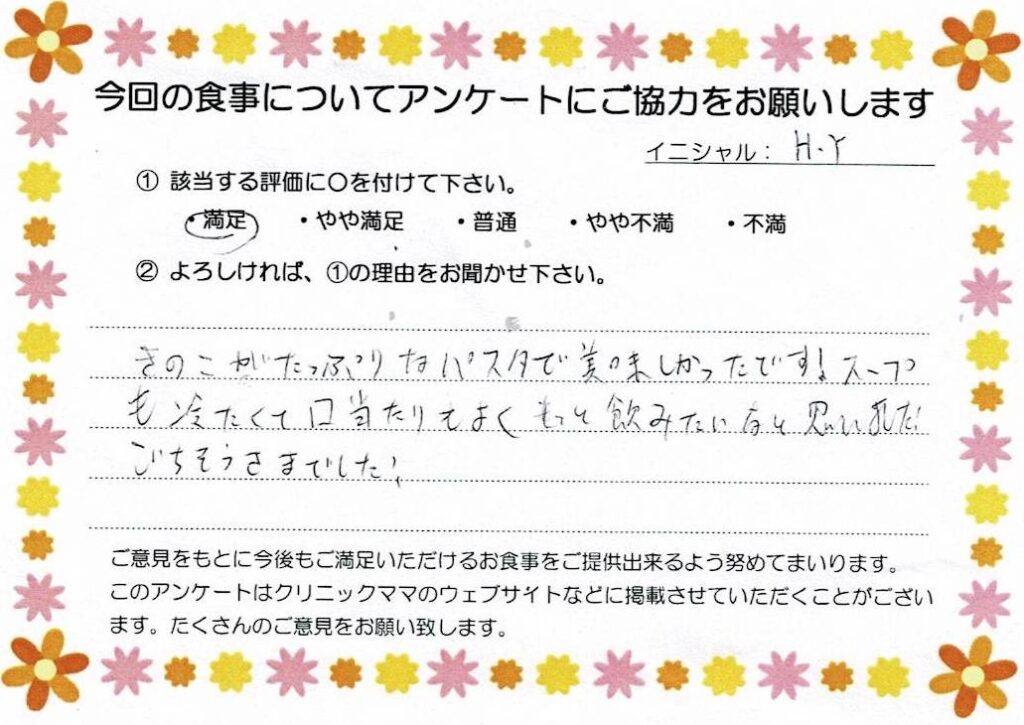 今回の食事についてアンケートにご協力をお願いします
イニシャル： H.Y
① 該当する評価に〇を付けて下さい。
・満足 ・やや満足 ・普通 ・やや不満 ・不満
② よろしければ、①の理由をお聞かせ下さい。
きのこがたっぷりなパスタで美味しかったです！スープ
も冷たくて口当たりもよくもっと飲みたいなと思いました！
ごちそうさまでした！
ご意見をもとに今後もご満足いただけるお食事をご提供出来るよう努めてまいります。
このアンケートはクリニックママのウェブサイトなどに掲載させていただくことがござい
ます。たくさんのご意見をお願い致します。